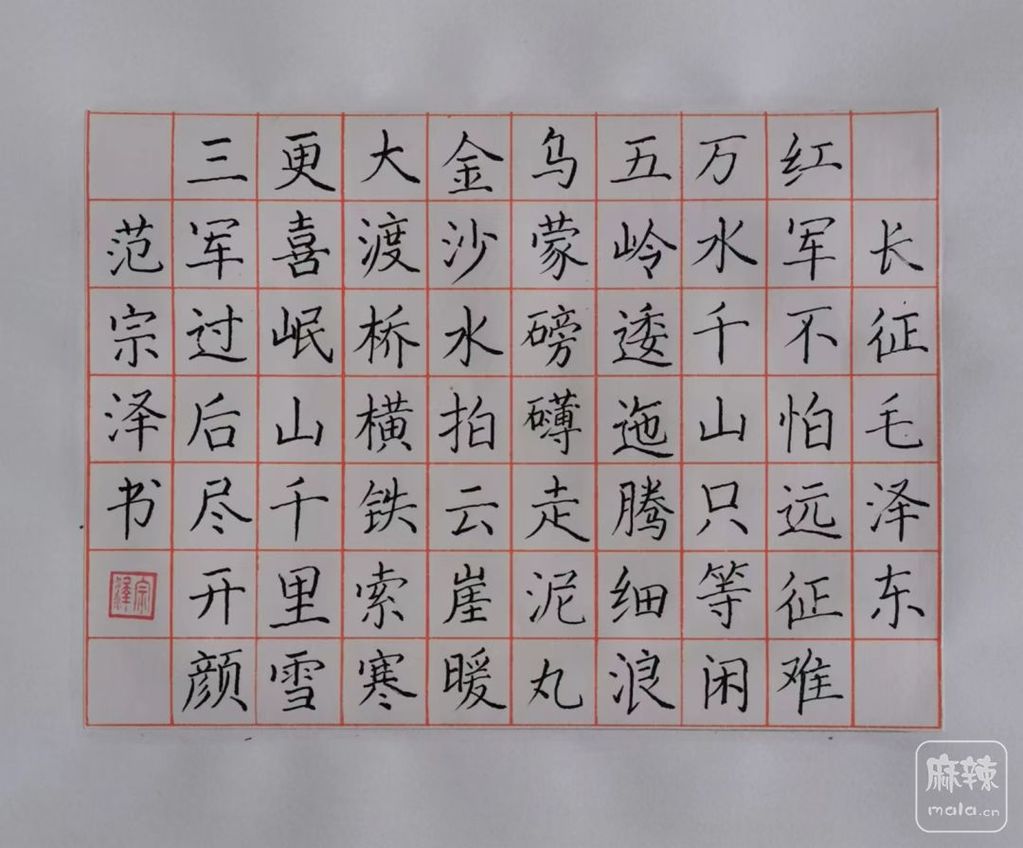 长征毛泽东
红军不怕远征难
万水千山只等闲
五岭逶迤腾细浪
乌蒙磅礴走泥丸
金沙水拍云崖暖
大渡桥横铁索寒
更喜岷山千里雪
三军过后尽开颜
范宗泽书
宗泽
麻辣
mala.cn